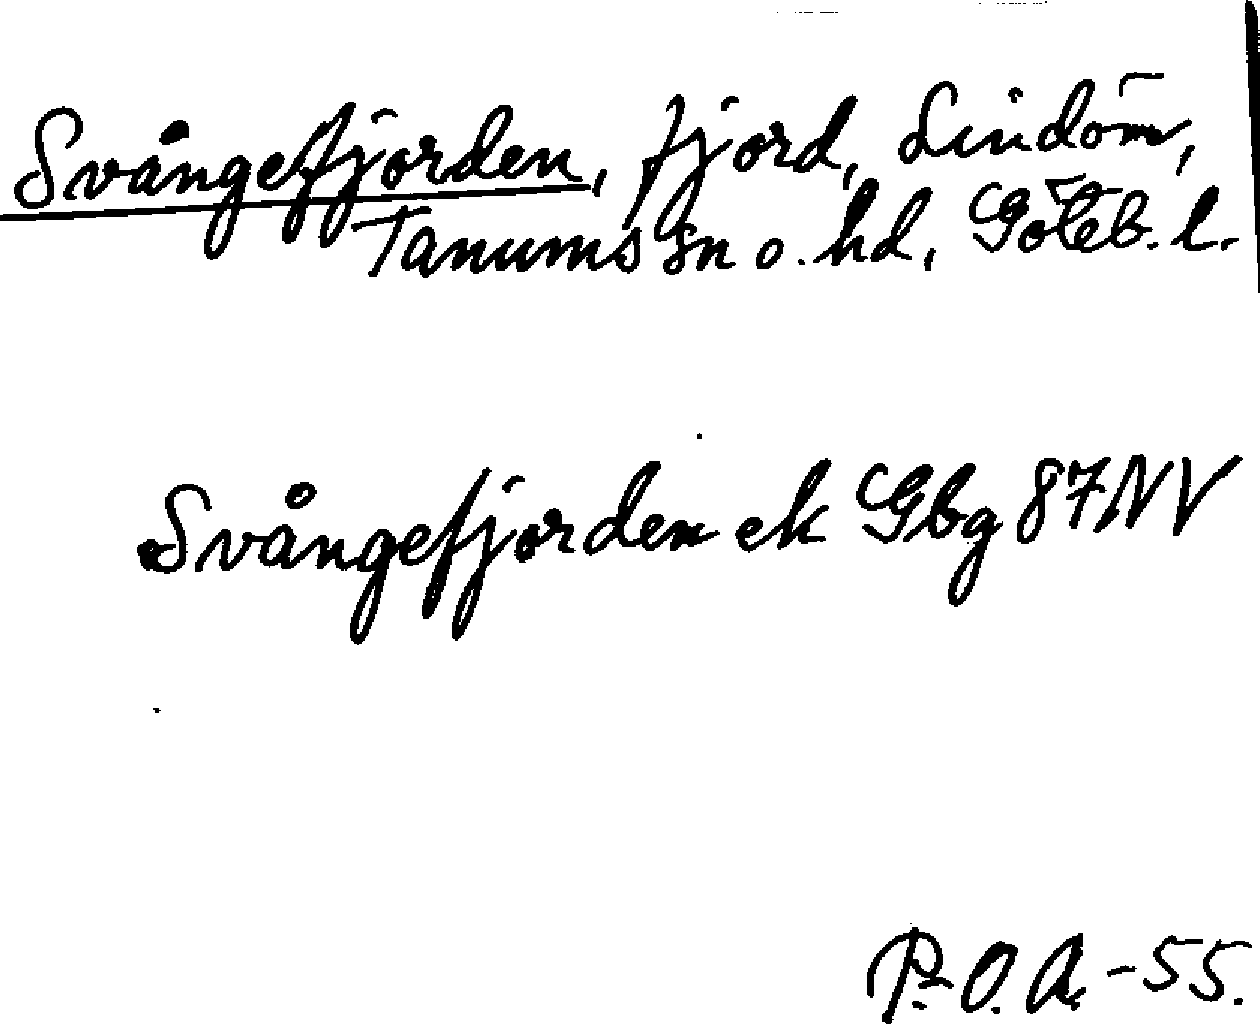 Svångefjorden, fjord, Lindöm,
Tanums sn o. hd, Göteb. l.
Svångefjorden ek Gbg 87 NV
P.O.A. -55.